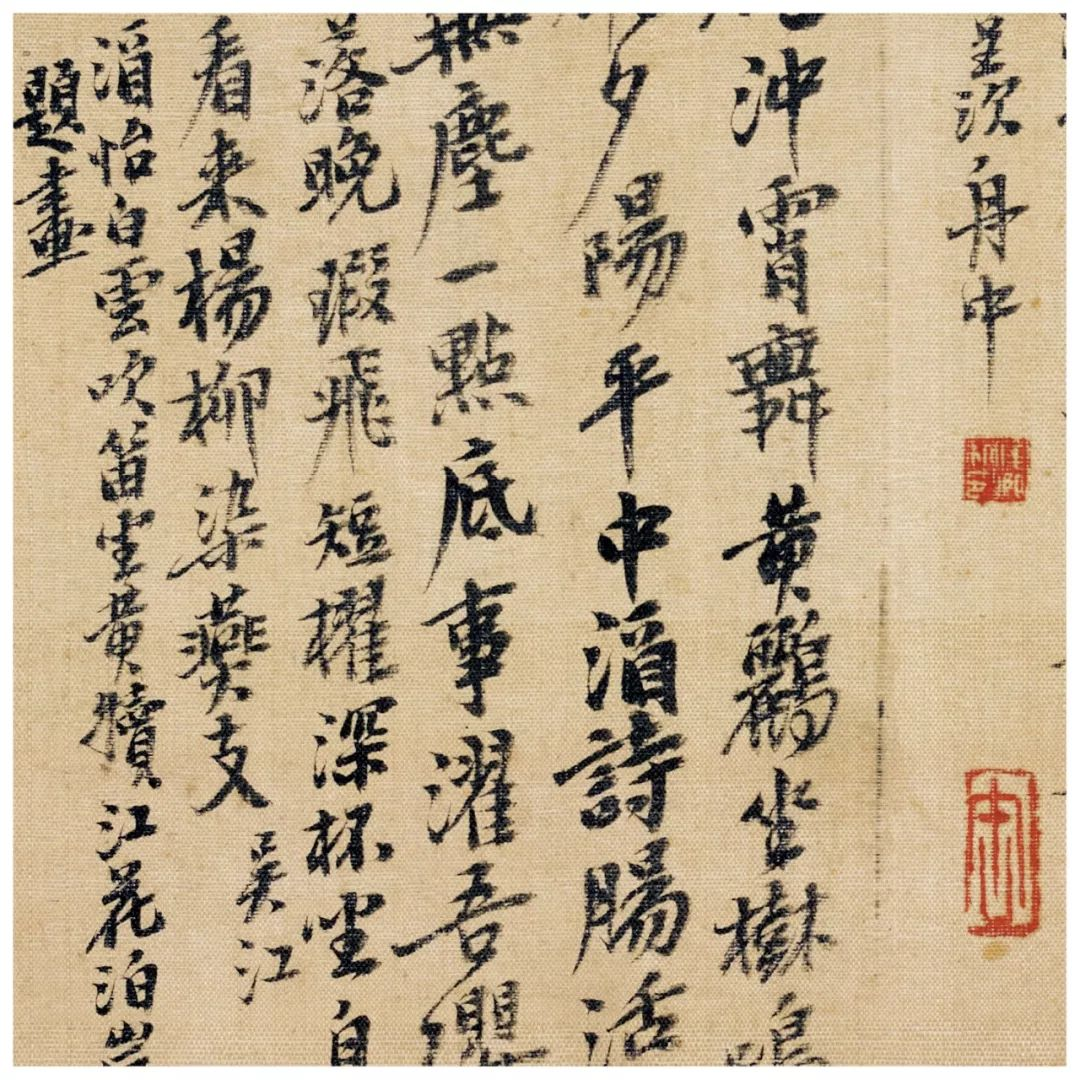 呈次舟中
沖霄舞黄鸝坐樹鳴
夕陽平中涓詩腸活
無塵一點底事濯吾纓
落晚瑕飛短櫂深杯坐自
看来楊柳染爨支
吳江
涓怡白雲吹笛坐黄犢江花泊岩
題畫